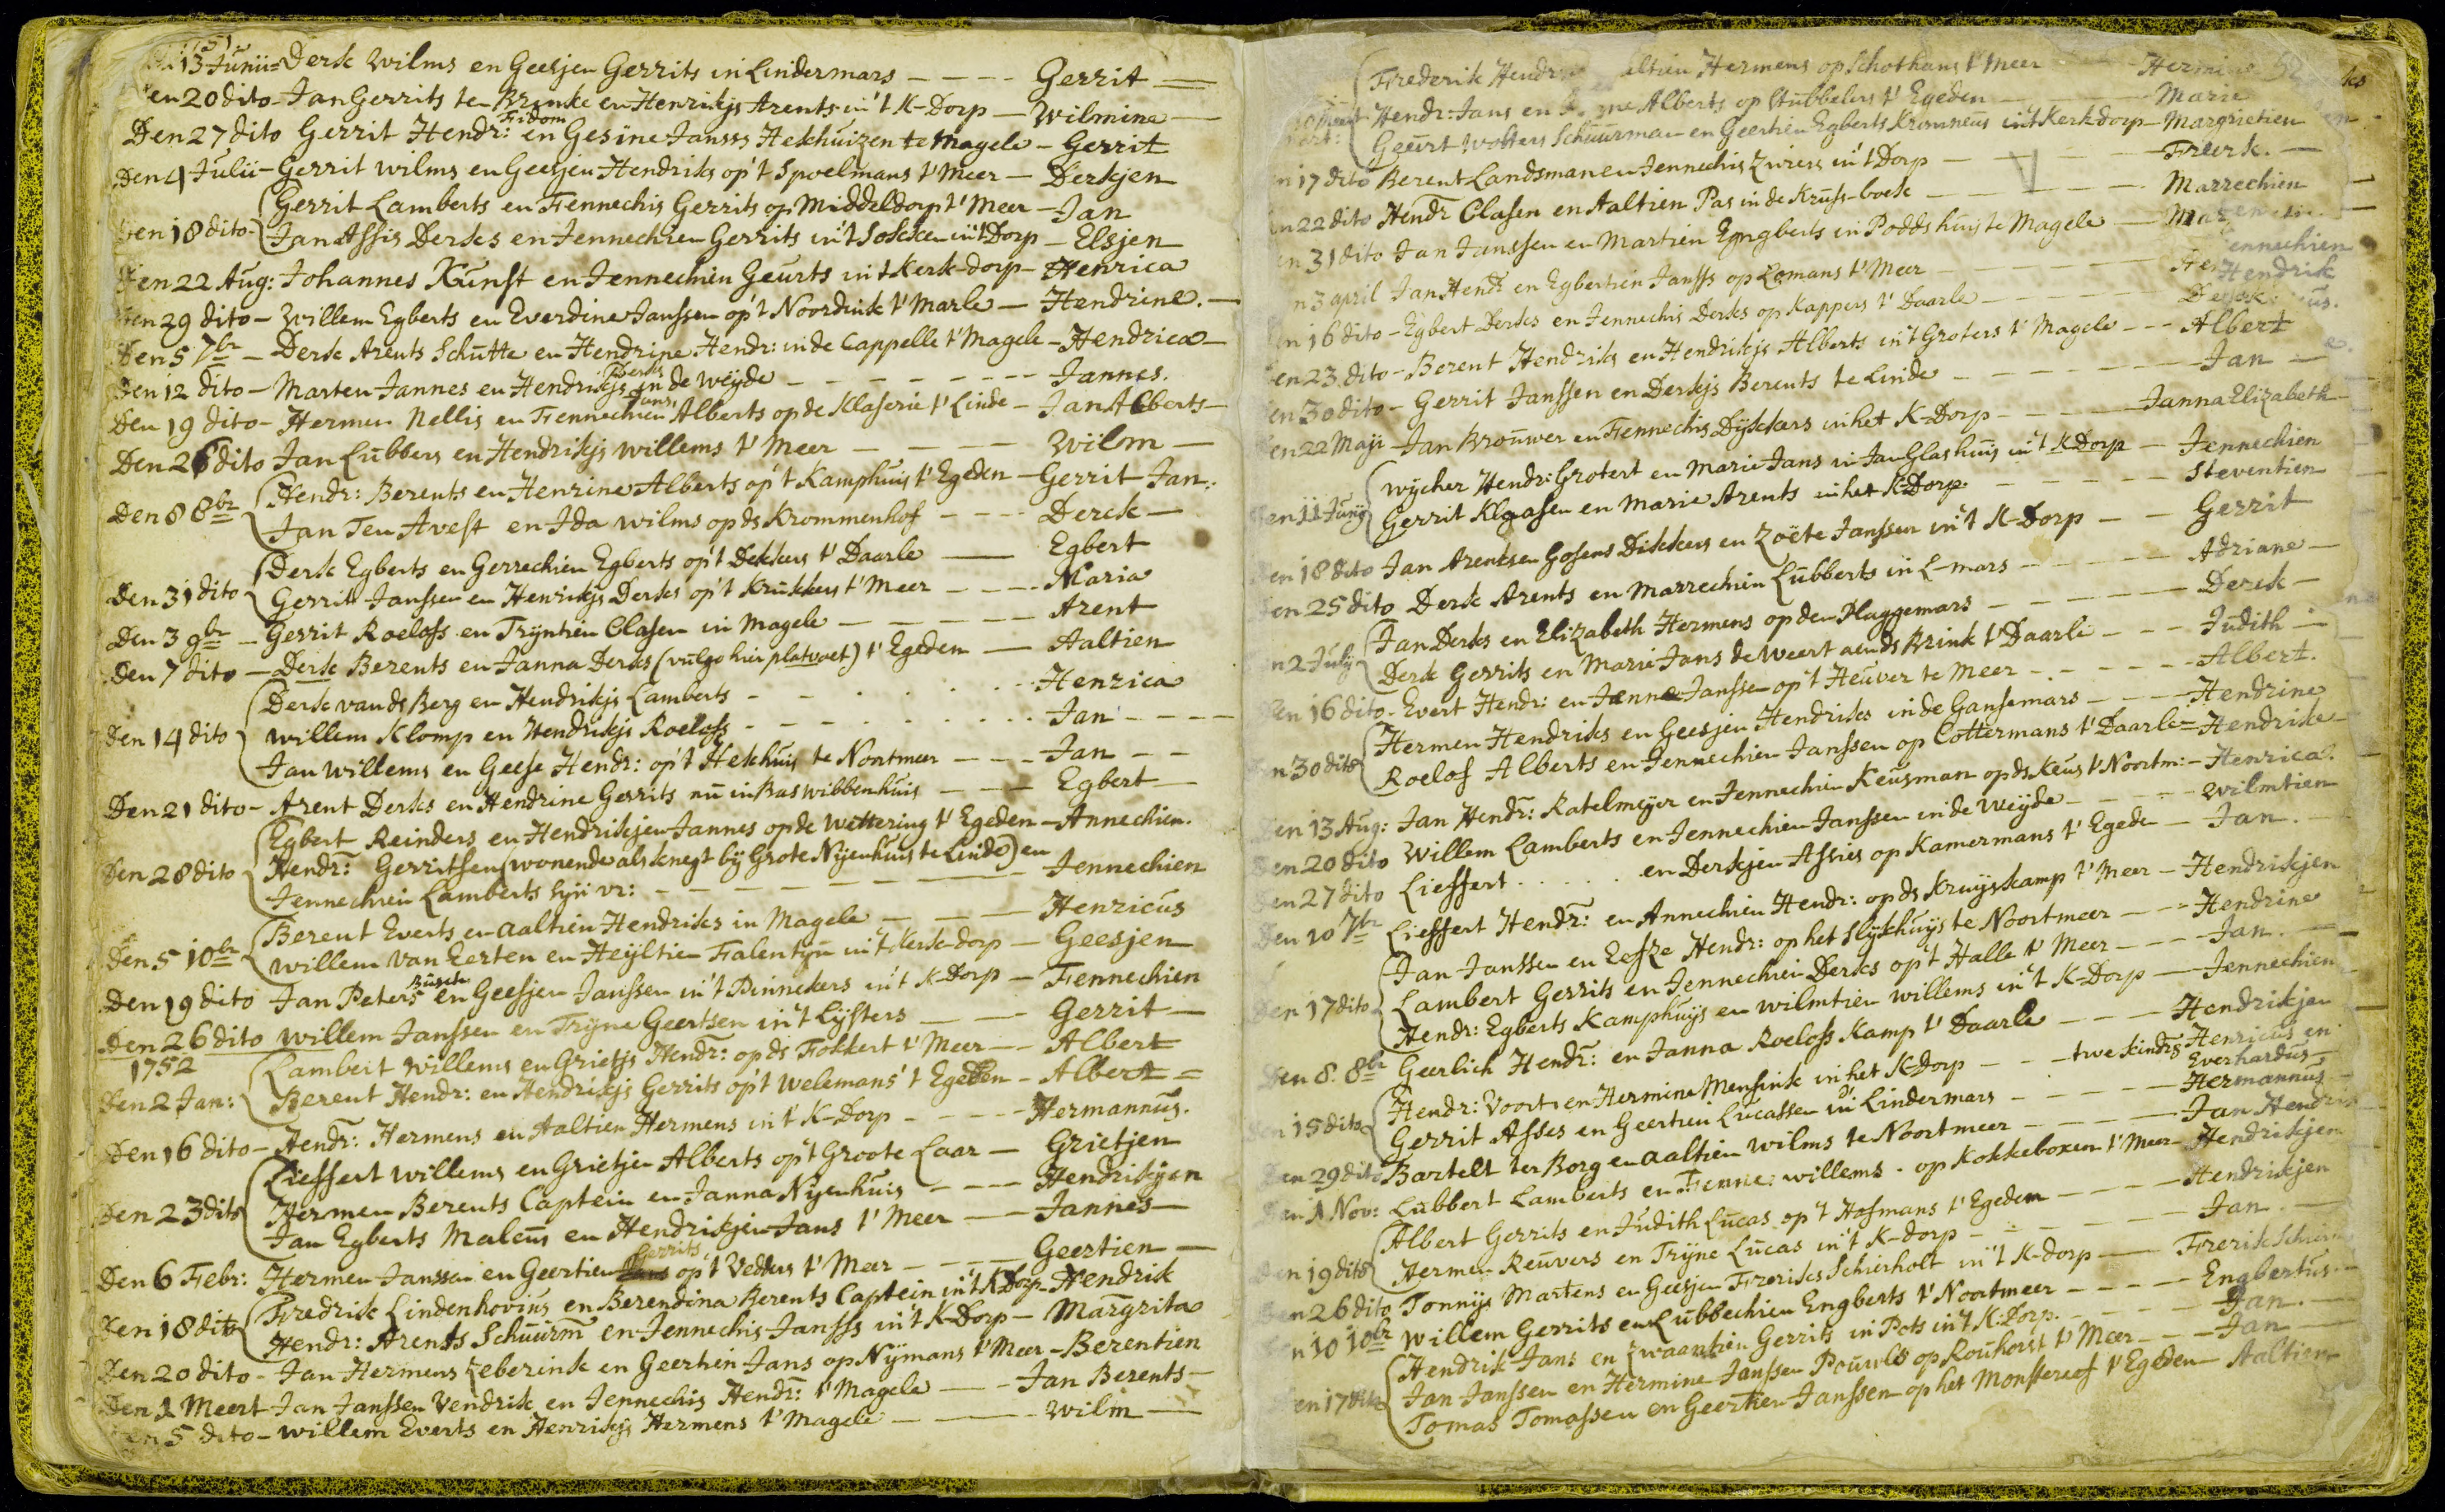 13 Junii - Derk Wilms en Geesjen Gerrits in Lindermars - Gerrit
en 20 dito - Jan Gerrits te Brinke en Henrikjs Arents in 't K-Dorp - Wilmina
Fidom
Den 27 dito Gerrit Hendr: en Gesine Janss Hekhuizen te Magele - Gerrit
Den 4 Julii - Gerrit Wilms en Geesjen Hendriks op 't Spoelmans t' Meer - Derkjen
Gerrit Lamberts en Fennechis Gerrits op Middeldorp t' Meer - Jan
Den 18 dito - Jan Assis Derks en Jennechien Gerrits in 't Dorp - Elsjen
Den 22 Aug: Johannes Kunst en Jennechien Geurts in 't Kerk-dorp - Henrica
Den 29 dito - Willem Egberts en Everdine Janssen op 't Noordink t' Marle - Hendrine.
Den 5 7br - Derk Arents Schutte en Hendrine Hendr: in de Cappelle t' Magele - Hendrica
Derks
Den 12 dito - Marten Jannes en Hendrikjs in de Weyde - Jannes.
Jans
Den 19 dito - Hermen Nellis en Fennechien Alberts op de Klaserie t' Linde - Jan Alberts
Den 26 dito Jan Lubbers en Hendrikjs Willems t' Meer - Wilm
Hendr: Berents en Henrine Alberts op 't Kamphuis t' Egeden - Gerrit Jan.
Den 8 8br Jan Ten Avest en Ida Wilms op ds Krommenhof - Derck
Derk Egberts en Gerrechien Egberts op 't Dekkers t' Daarle - Egbert
Den 31 dito Gerrit Janssen en Henrikjs Derks op 't Krukkers t' Meer - Maria
Den 3 9br - Gerrit Roelofs en Trijntien Clasen in Magele - Arent
Den 7 dito - Derk Berents en Janna Derks (vulgo hier platvoet) t' Egedem - Aaltien
Derk van ds Berg en Hendrikjs Lamberts - Henrica
Den 14 dito Willem Klomp en Hendrikjs Roelofs - Jan
Jan Willems en Geese Hendr: op 't Hekhuis te Noortmeer - Jan
Den 21 dito - Arent Derks en Hendrine Gerrits nu in Bas wibbenhuis - Egbert
Egbert Reinders en Hendrikjen Jannes op de Wettering t' Egeden - Annechien.
Den 28 dito Hendr: Gerritsen (wonende als knegt bij Grote Nijenhuis te Linde) en
Jennechien Lamberts sijn vr: - Jennechien
Berent Everts en Aaltien Hendriks in Magele - Henricus
Den 5 10br Willem van Eerten en Heyltien Falentyn in 't Kerk-dorp - Geesjen
Busch
Den 19 dito Jan Peters en Geesjen Janssen in 't Pinnekers in 't K-Dorp - Fennechien
Den 26 dito Willem Janssen en Trijne Geertsen in 't Lijsters - Gerrit
1752 Lambert Willems en Grietjs Hendr: op ds Fokkert t' Meer - Albert
Den 2 Jan: Berent Hendr: en Hendrikjs Gerrits op 't Welemans t Egeden - Albert
Den 16 dito - Hendr: Hermens en Aaltien Hermens in 't K-Dorp - Hermannus.
Lieffert Willems en Grietjen Alberts op 't Groote Laar - Grietjen
Den 23 dito Hermen Berents Captein en Janna Nyenhuis - Hendrikjen
Jan Egberts Maleus en Hendrikjen Jans t' Meer - Jannes
Gerrits
Den 6 Febr: Hermen Janssen en Geertien op 't Vedders t' Meer - Geertien
Fredrik Lindenhovius en Berendina Berents Captein in 't K Dorp - Hendrik
Den 18 dito Hendr: Arents Schuurm en Jennechis Janss in 't K-Dorp - Margrita
Den 20 dito - Jan Hermens Zeberink en Geertien Jans op Nijmans t' Meer - Berentien
Den 1 Meert Jan Janssen Vendrik en Jennechis Hendr: t' Magele - Jan Berents
en 5 dito - Willem Everts en Henrikjs Hermens t' Magele - Wilm
Frederik Hendr altien Hermens op Schothans t' Meer
Hendr: Jans en Alberts op Stubbelers t' Egeden - Marie
Geurt Wolters Schuurman en Geertien Egberts Krommeus in 't Kerkdorp - Margrietien
17 dito Berent Landsman en Jennechis Zwiers in 't Dorp - Freerk.
22 dito Hendr Clasen en Aaltien Pas in de Kruss-boek - Marrechien
31 dito Jan Janssen en Martien Engberts in Podds huis te Magele
3 april Jan Hendr en Egbertien Janss op Lomans t' Meer - Hendrik
16 dito - Egbert Derks en Jennechis Derks op Kappers t' Daarle
en 23 dito - Berent Hendriks en Hendrikjs Alberts in 't Groters t' Magele - Albert
en 30 dito - Gerrit Janssen en Derkjs Berents te Linde - Jan
en 22 Maji Jan Brouwer en Fennechis Dijkkers in het K-Dorp - Janna Elizabeth
Wijcher Hendr: Grotert en Marie Jans in Jan Glashuis in 't K Dorp - Jennechien
Den 11 Junij Gerrit Klaasen en Marie Arents in het K-Dorp. - Steventien
Den 18 dito Jan Arentsen Gosens Dikkers en Zoete Janssen in 't K-Dorp - Gerrit
Den 25 dito Derk Arents en Marrechien Lubberts in L-mars - Adriane
Jan Derks en Elizabeth Hermens op den Plaggemars - Derck
2 July Derk Gerrits en Marie Jans de Weert aen ds Brink t' Daarle - Judith
Den 16 dito - Evert Hendr: en Janne Janssen op 't Heuver te Meer - Albert.
Hermen Hendriks en Geesjen Hendriks in de Gansemars - Hendrine
30 dito Roelof Alberts en Jennechien Janssen op Cottermans t' Daarle - Hendrike
Den 13 Aug: Jan Hendr: Katelmeyer en Jennechien Keusman op ds Keus t' Noortm: - Henrica.
Den 20 dito Willem Lamberts en Jennechien Janssen in de Weyde - Wilmtien
Den 27 dito Lieffert . . . . . en Derkjen Assies op Kamermans t' Egede - Jan.
Den 10 7br Lieffert Hendr: en Annechien Hendr: op ds Kruyskamp t' Meer - Hendrikjen
Jan Janssen en Eefze Hendr: op het Slykhuys te Noortmeer - Hendrine
Den 17 dito Lambert Gerrits en Jennechien Derks op 't Halle t' Meer - Jan
Hendr: Egberts Kamphuys en Wilmtien Willems in 't K-Dorp - Jennechien
Den 8. 8br Geerlich Hendr: en Janna Roelofs Kamp t' Daarle - Hendrikjen
Hendr: Voorts en Hermine Mensink in het K-Dorp - twe kindrs Henricus en
Everhardus
15 dito Gerrit Asses en Geertien Lucassen in Lindermars - Hermannus
Den 29 dito Bartelt ter Borg en Aaltien Wilms te Noortmeer - Jan Hendrik
Den 1 Nov: Lubbert Lamberts en Fenne: Willems. op Kokkeboxem t' Meer - Hendrikjen
Albert Gerrits en Judith Lucas op 't Hofmans t' Egedem - Hendrikjen
Den 19 dito Hermen Reuvers en Trijne Lucas in 't K-dorp - Jan
Den 26 dito Tonnys Martens en Geesjen Freriks Schierholt in 't K-dorp - Frerik
10 10br Willem Gerrits en Lubbechien Engberts t' Noortmeer - Engbertus
Hendrik Jans en Zwaantien Gerrits in Pots in 't K.Dorp. - Jan
Den 17 dito Jan Janssen en Hermine Janssen Pouwls op Rouhorst t' Meer - Jan
Tomas Tomassen en Geertien Janssen op het Monstereef t' Egeden - Aaltien